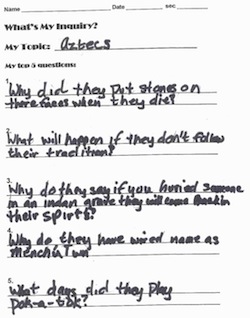 Name Date sec
What's My Inquiry?
My Topic: Aztecs
My top 5 questions:
1. Why did they put stones on
there faces when they die?
2. What will happen if they don't follow
their tradition?
3. Why do they say if you buried someone
in an indian grave they will come back in
their spirts?
4. Why do they have wired name as
5. What days did they play
pok-a-tok?